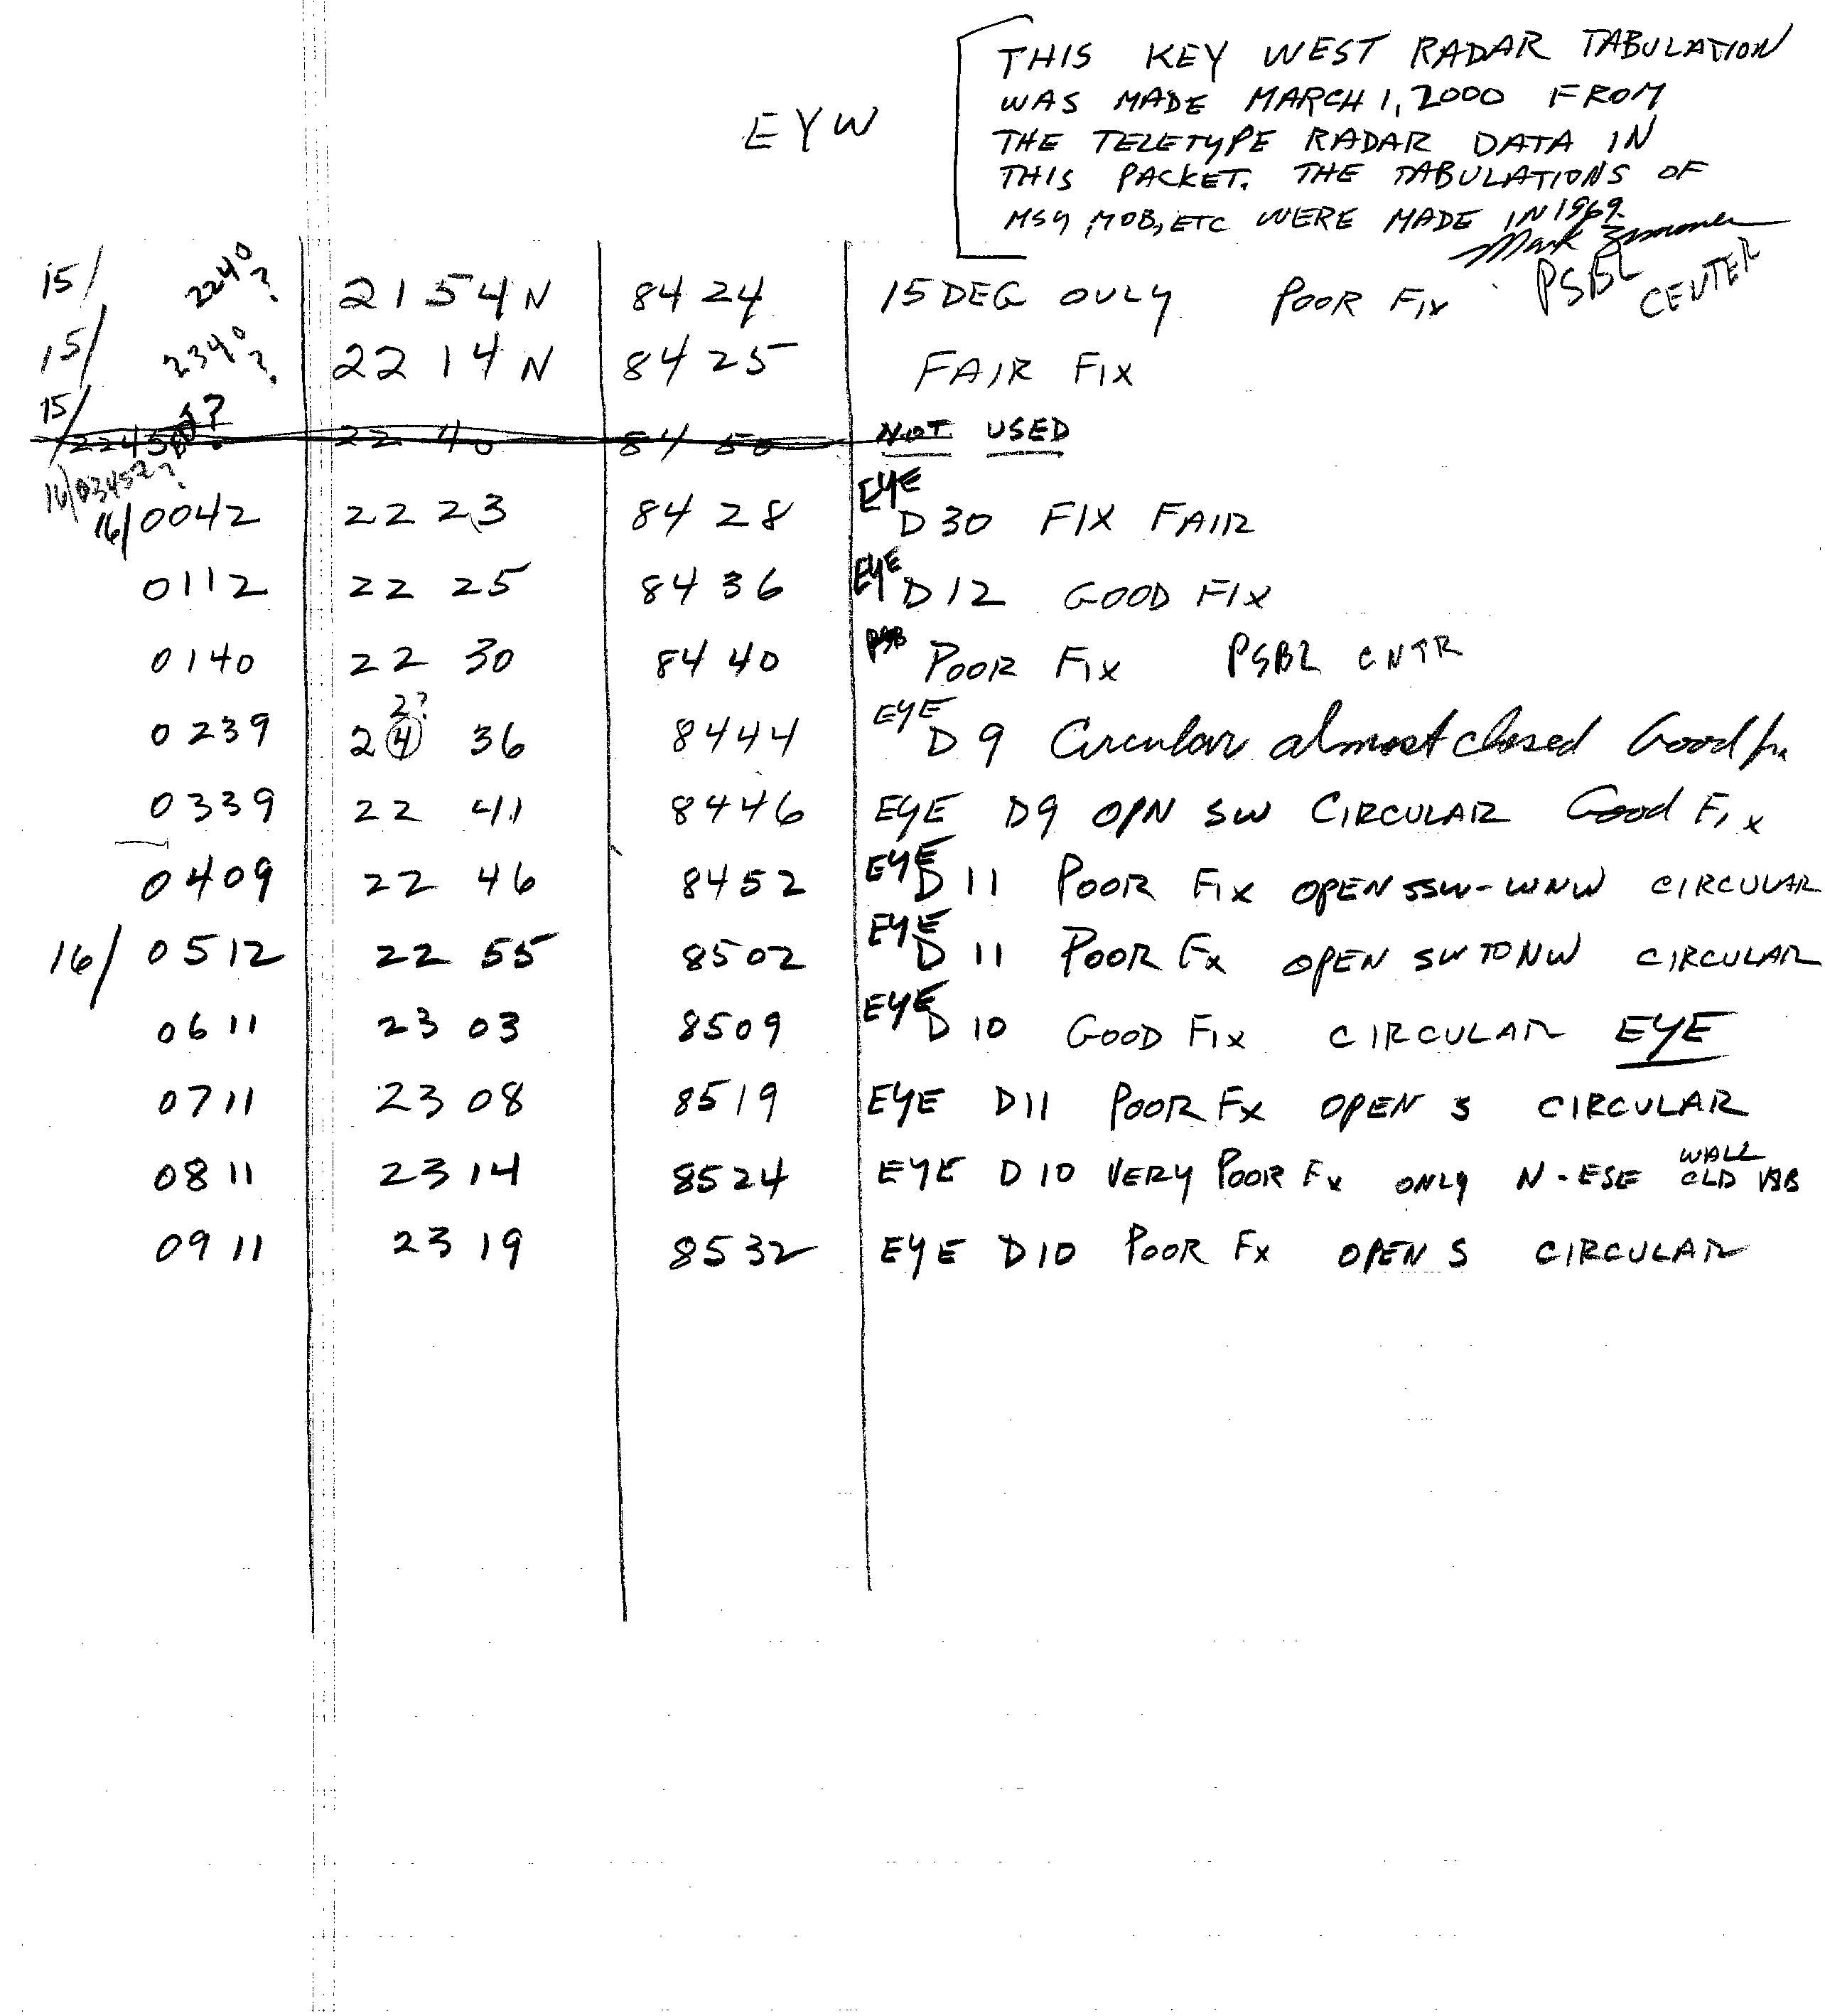 THIS KEY WEST RADAR TABULATION
WAS MADE MARCH 1, 2000 FROM
THE TELETYPE RADAR DATA IN
THIS PACKET. THE TABULATIONS OF
MSY, MOB, ETC WERE MADE IN 1969.
Mark Zimmer
EYW
15/ 2240? 2154N 8424 15 DEG ONLY POOR FIX PSBL CENTER
15/ 2340? 22 14N 8425 FAIR FIX
15/ ?
22 40 84 50 NOT USED
16/0345Z?
16/0042 22 23 84 28 EYE D30 FIX FAIR
0112 22 25 84 36 EYE D12 GOOD FIX
0140 22 30 84 40 PSB POOR FIX PSBL CNTR
2?
0239 24 36 8444 EYE D9 Circular almost closed Good
0339 22 41 8446 EYE D9 OPN SW CIRCULAR Good Fix
0409 22 46 8452 EYE D 11 POOR FIX OPEN SSW-WNW CIRCULAR
16/ 0512 22 55 8502 EYE D 11 POOR Fx OPEN SW TO NW CIRCULAR
0611 23 03 8509 EYE D 10 GOOD FIX CIRCULAR EYE
0711 23 08 8519 EYE D11 POOR Fx OPEN S CIRCULAR
0811 23 14 8524 EYE D10 VERY POOR Fx ONLY N-ESE WALL CLD VSB
0911 23 19 8532 EYE D10 POOR Fx OPEN S CIRCULAR